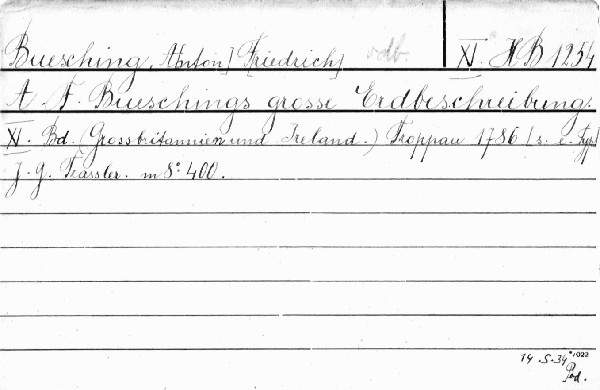 Buesching, A[nton] F[riedrich] odb. XI. HB 1254
A. F. Bueschings grosse Erdbeschreibung.
XI. Bd. (Grossbritannien und Ireland.) Troppau 1786 [s. e. typ.]
J. G. Trassler. m8° 400.
14-5-34 *1022
Pod.